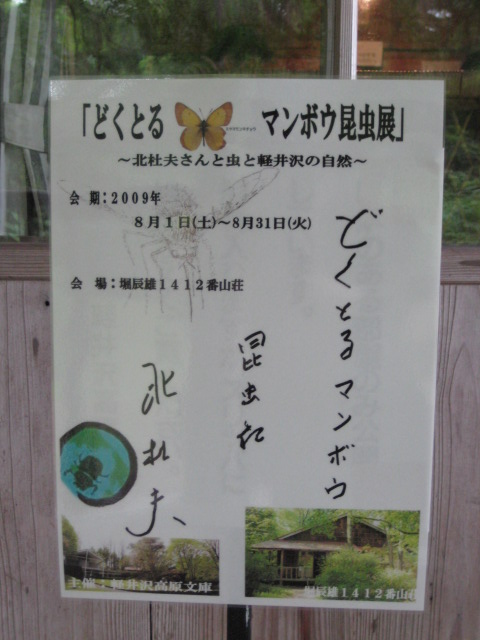 「どくとる マンボウ昆虫展」
～北杜夫さんと虫と軽井沢の自然～
会 期：2009年
8月1日(土)～8月31日(火)
会 場：堀辰雄1412番山荘
どくとるマンボウ
昆虫記
北杜夫
主催：軽井沢高原文庫
堀辰雄1412番山荘